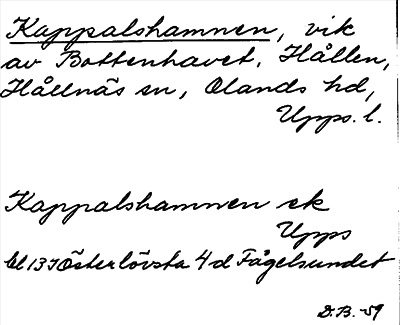 Kappalshamnen, vik
av Bottenhavet, Hållen,
Hållnäs sn, Olands hd,
Upps. l.
Kappalshamnen ek
Upps
bl 13 I Österlövsta 4 d Fågelsundet
D.B. -59